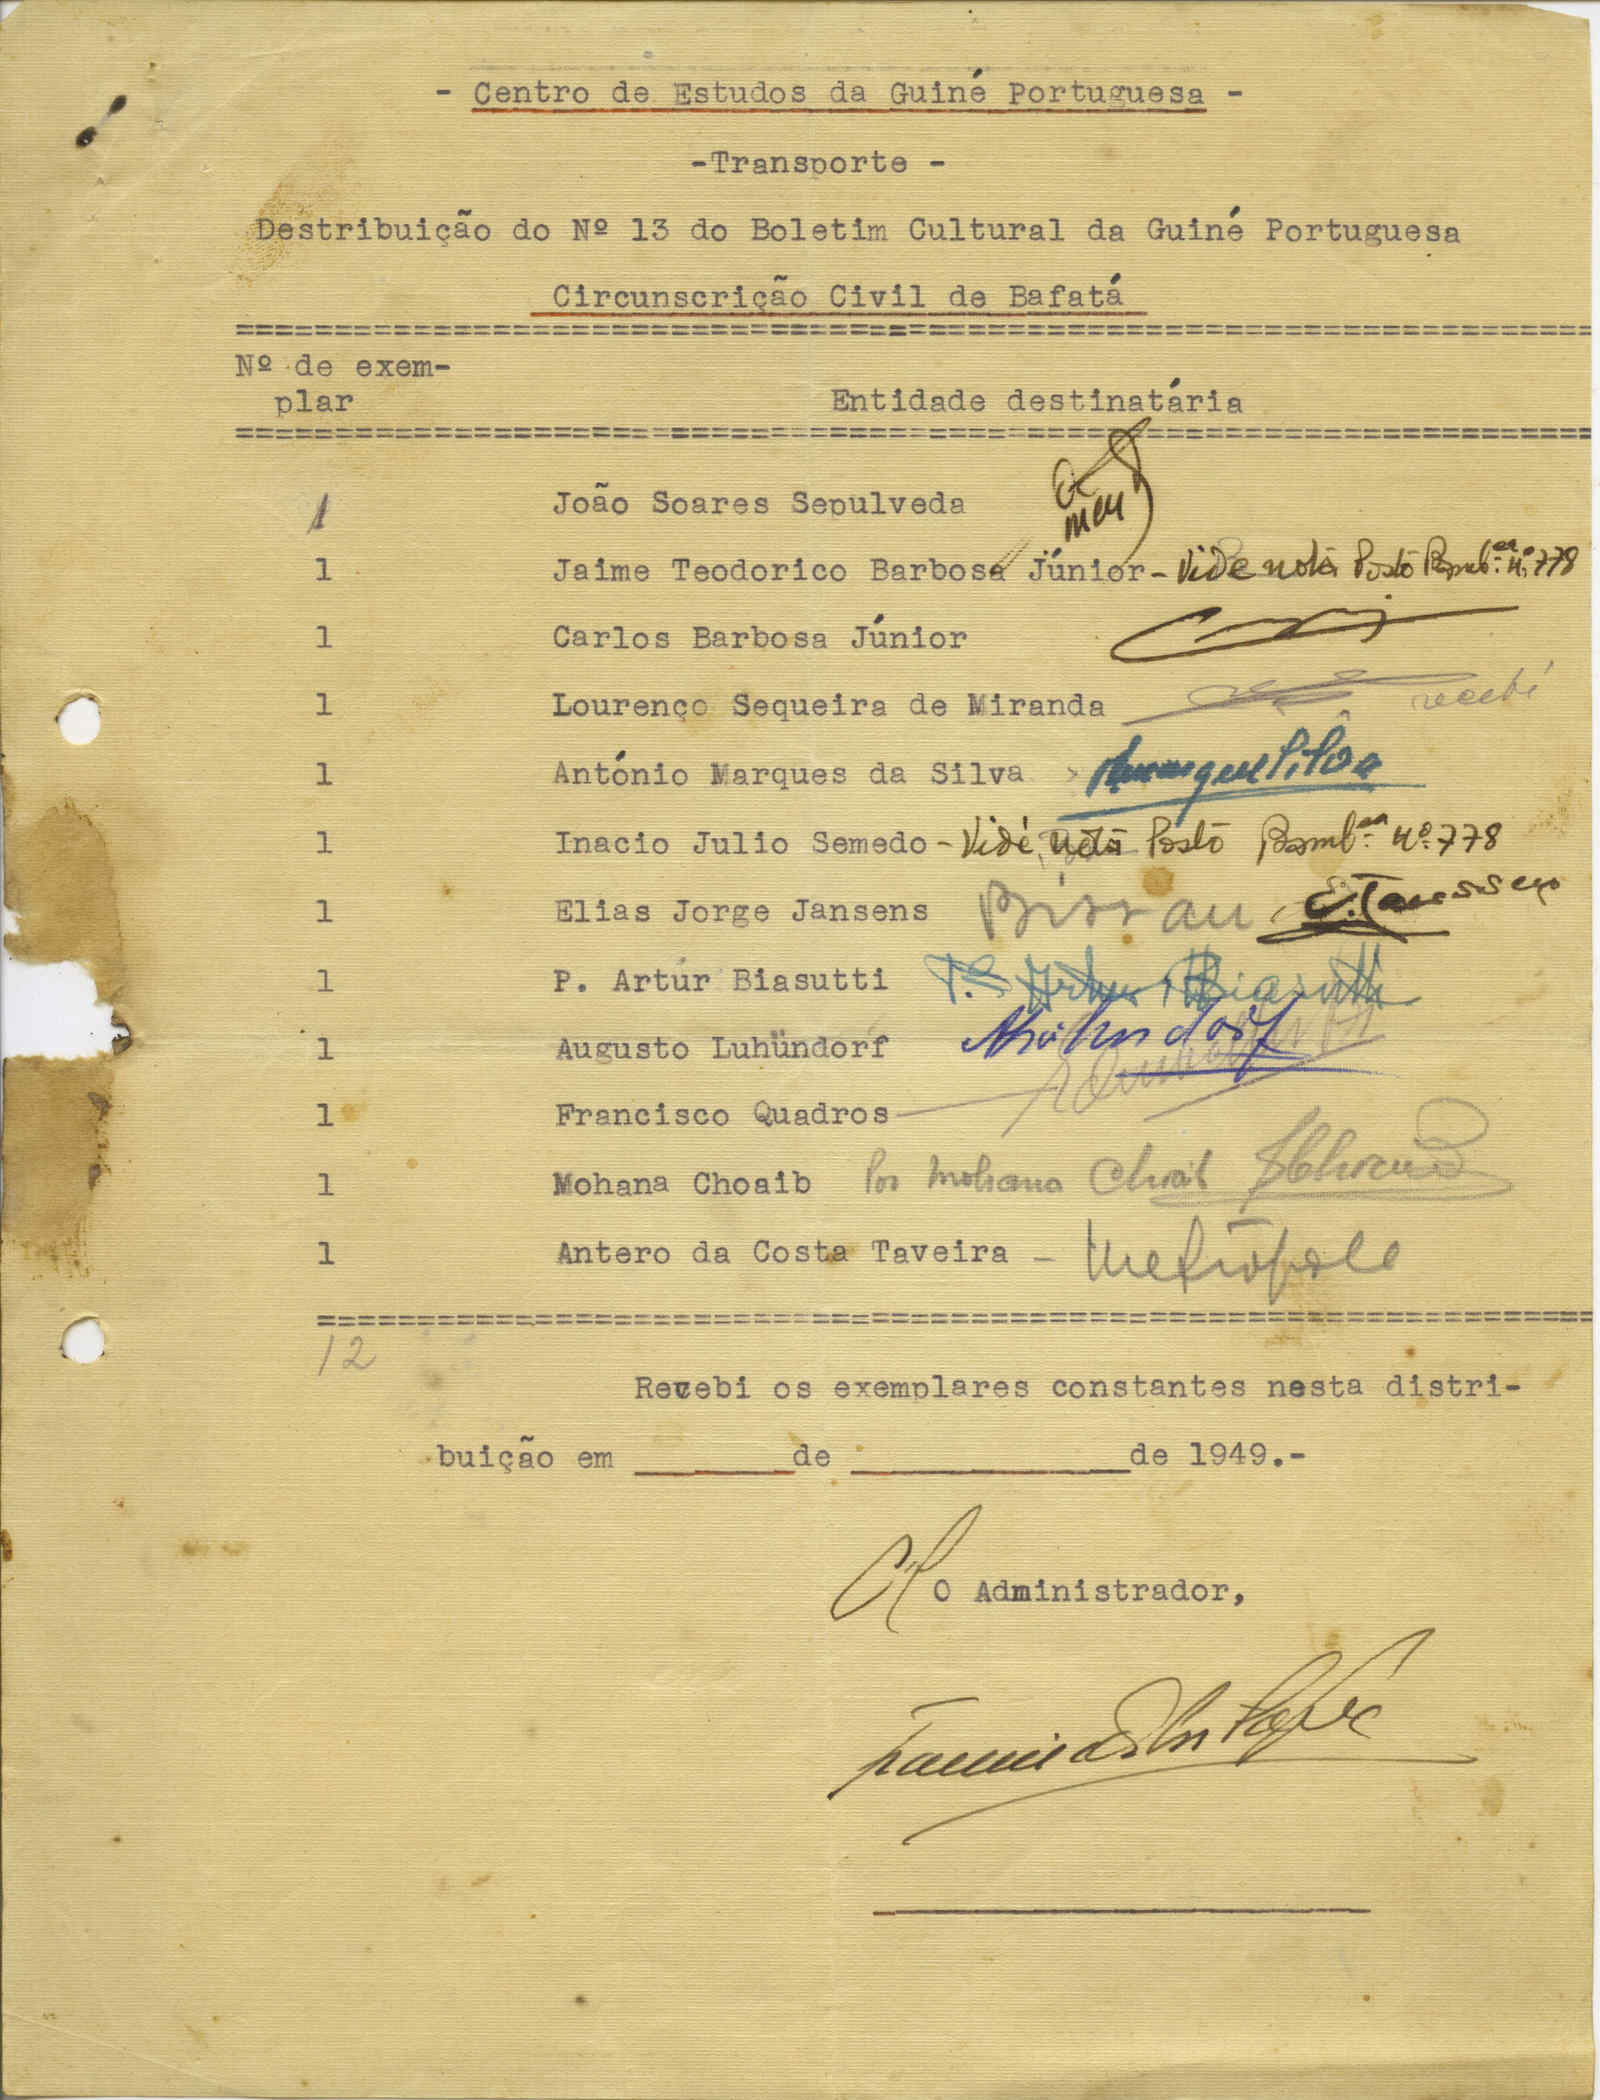 - Centro de Estudos da Guiné Portuguesa -
-Transporte -
Destribuição do Nº 13 do Boletim Cultural da Guiné Portuguesa
Circunscrição Civil de Bafatá
Nº de exem-
plar
Entidade destinatária
1 João Soares Sepulveda
1 Jaime Teodorico Barbosa Júnior - Vide nota Posto Bamb.ca nº 778
1 Carlos Barbosa Júnior
1 Lourenço Sequeira de Miranda recebi
1 António Marques da Silva
1 Inacio Julio Semedo - Vide nota Posto Bamb.ca nº 778
1 Elias Jorge Jansens Bissau
1 P. Artúr Biasutti P. Artur Biasutti
1 Augusto Luhündorf
1 Francisco Quadros
1 Mohana Choaib Por Mohana Choaib
1 Antero da Costa Taveira - Metrópole
12
Recebi os exemplares constantes nesta distri-
buição em ______ de ______ de 1949.-
O Administrador,